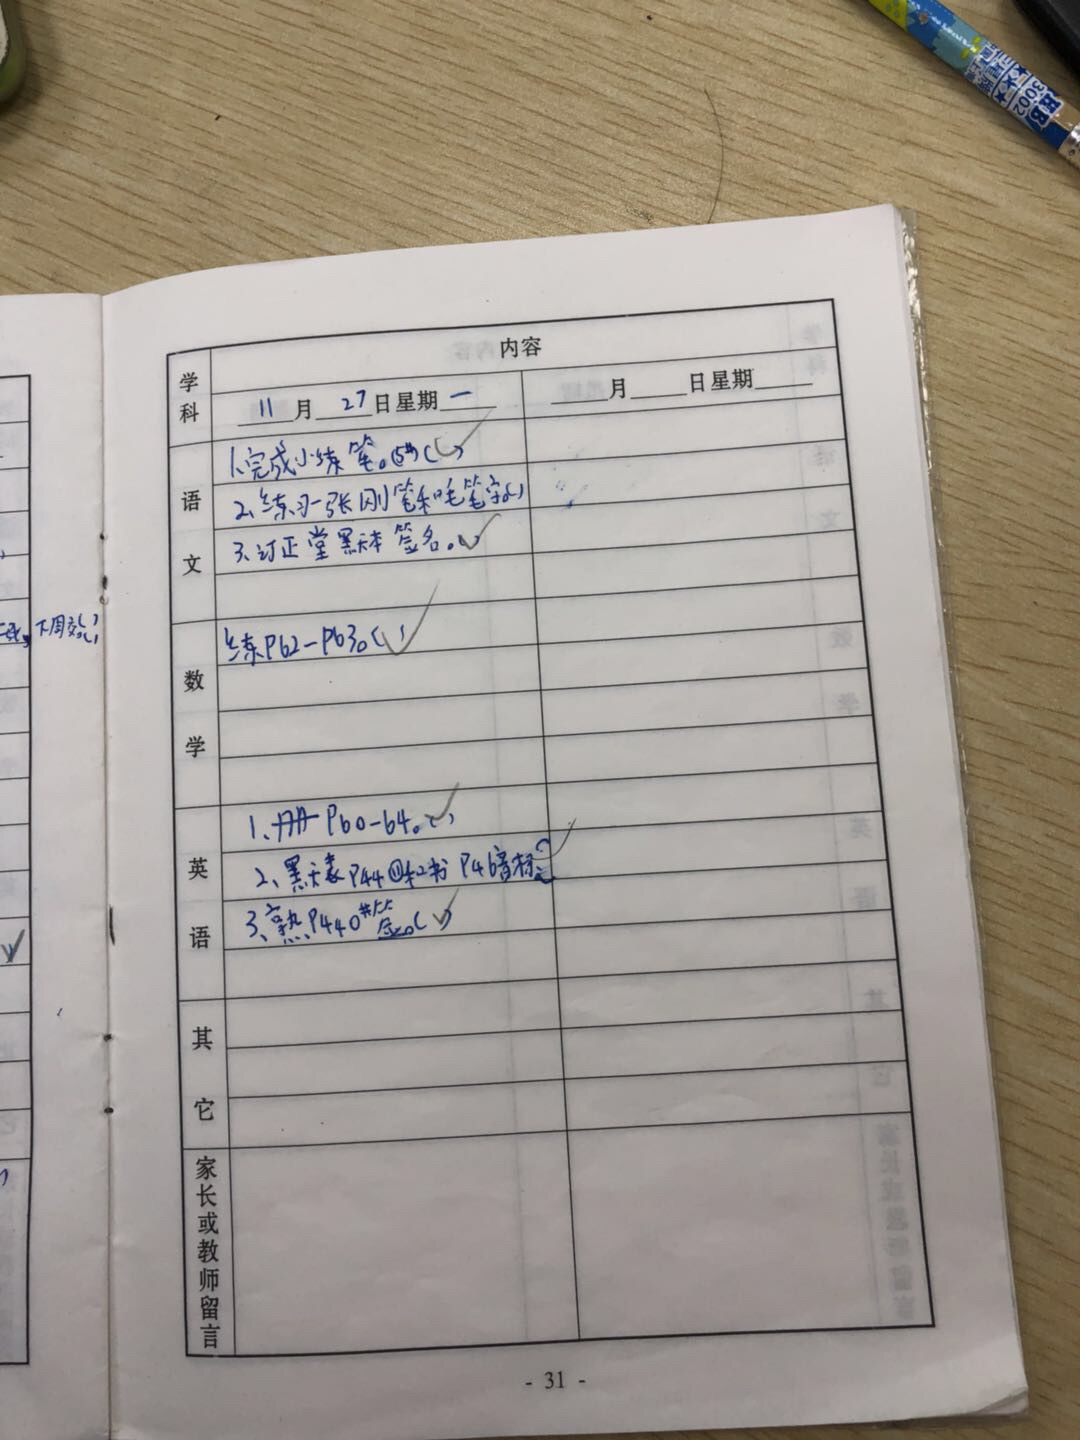 学科
内容
11月27日星期一
月 日星期
语文
1.完成小练笔。
2.练习一张刚笔和毛笔字。()
3.订正堂黑本 签名。
数学
练P62-P63。()
英语
1、册P60-64。()
2、黑表P44 和书P46音标
3、熟P44 签。()
其它
家长或教师留言
- 31 -
下周交
HB
3002